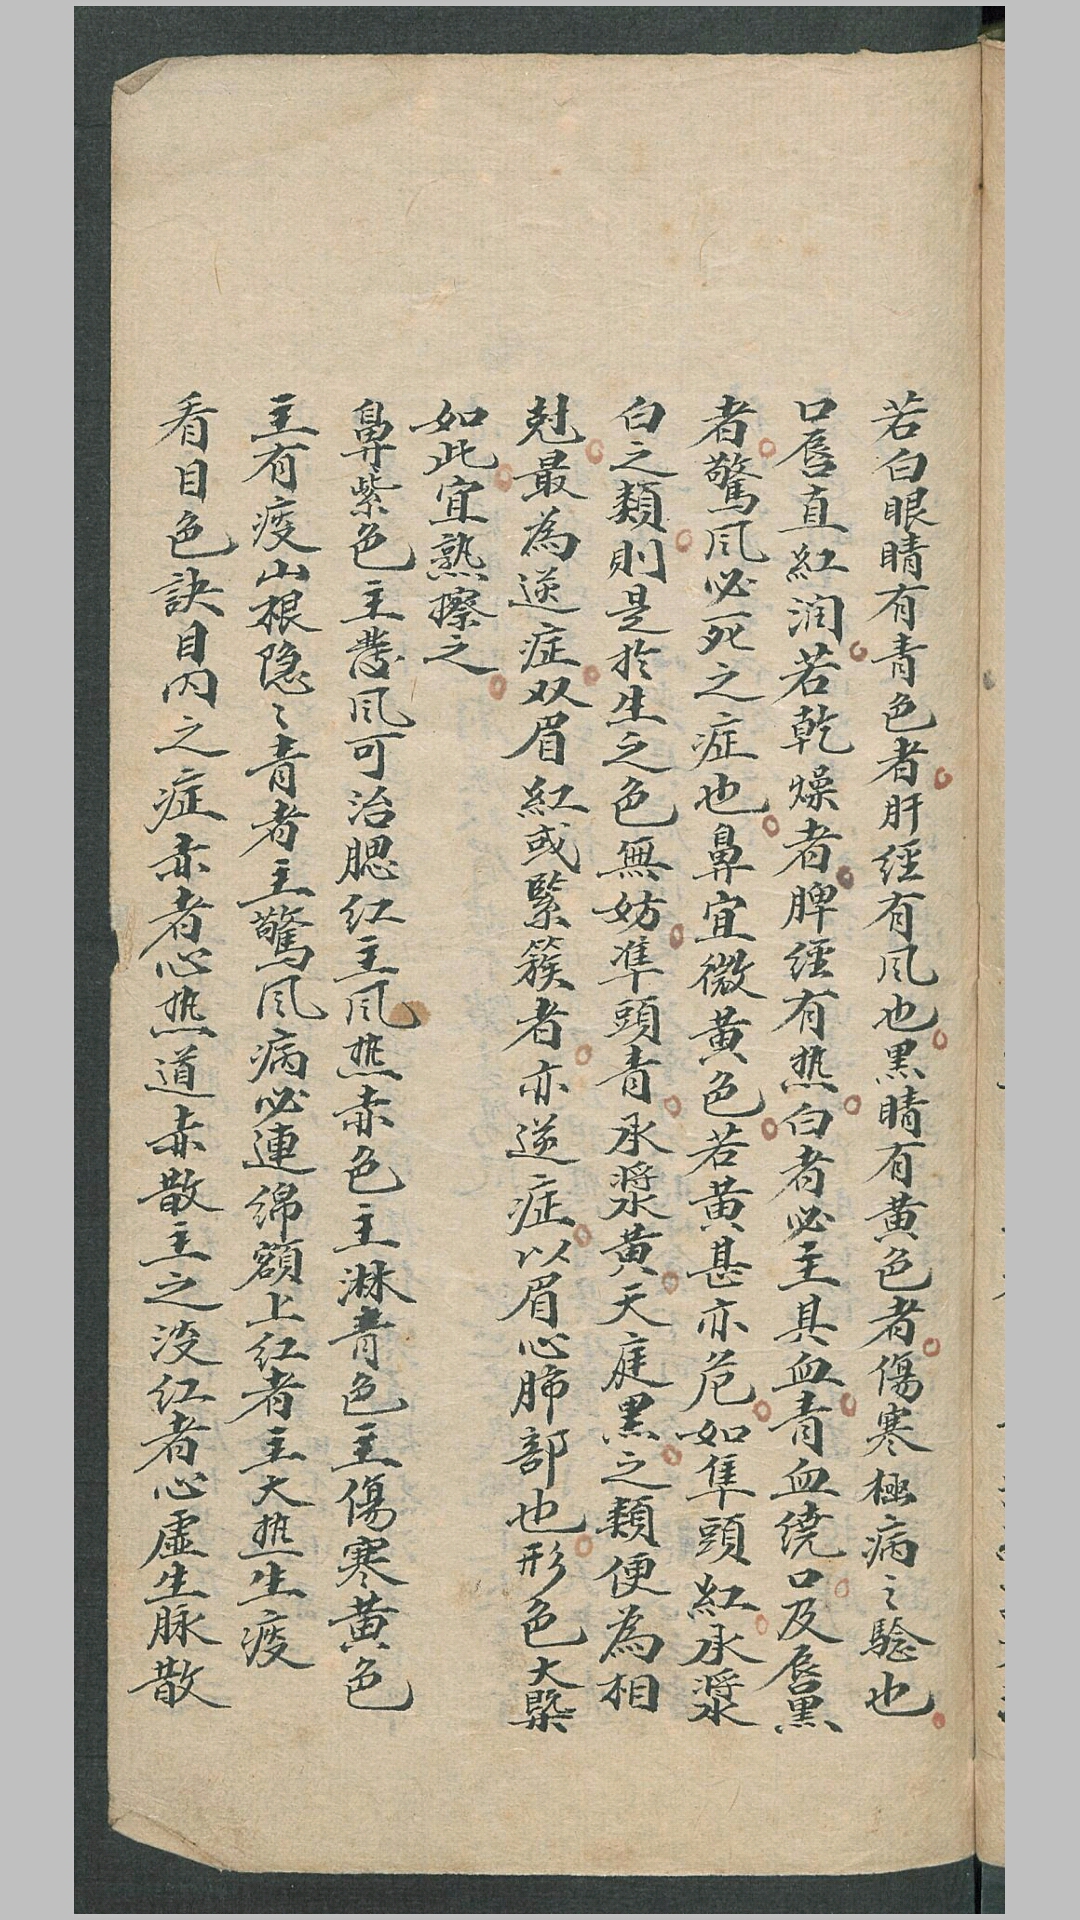 若白眼睛有青色者肝經有风也黑睛有黄色者傷寒極病〻驗也
口唇直紅润若乾燥者脾經有热白者必主具血青血繞口及唇黑
者驚风必死之症也鼻宜微黄色若黄甚亦危如隼頭紅承漿
白之類則是於生之色無妨準頭青承漿黄天庭黑之類便為相
尅最為逆症双眉紅或緊簇者亦逆症以眉心肺部也形色大槩
如此宜熟擦之
鼻紫色主叢风可治腮红主风热赤色主淋青色主傷寒黄色
主有痰山根隐〻青者主驚风病必連綿額上红者主大热生痰
看目色訣目内之症赤者心热道赤散主之淡红者心虛生脉散